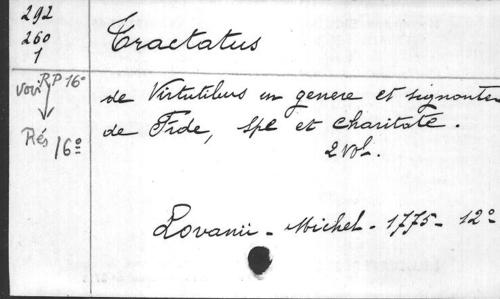 292
260
1
Tractatus
voir RP 16°
Rés 16°
de Virtutibus in genere et signonter
de Fide, Spe et Charitate.
2 vol.
Lovanii - Michel - 1775 - 12°